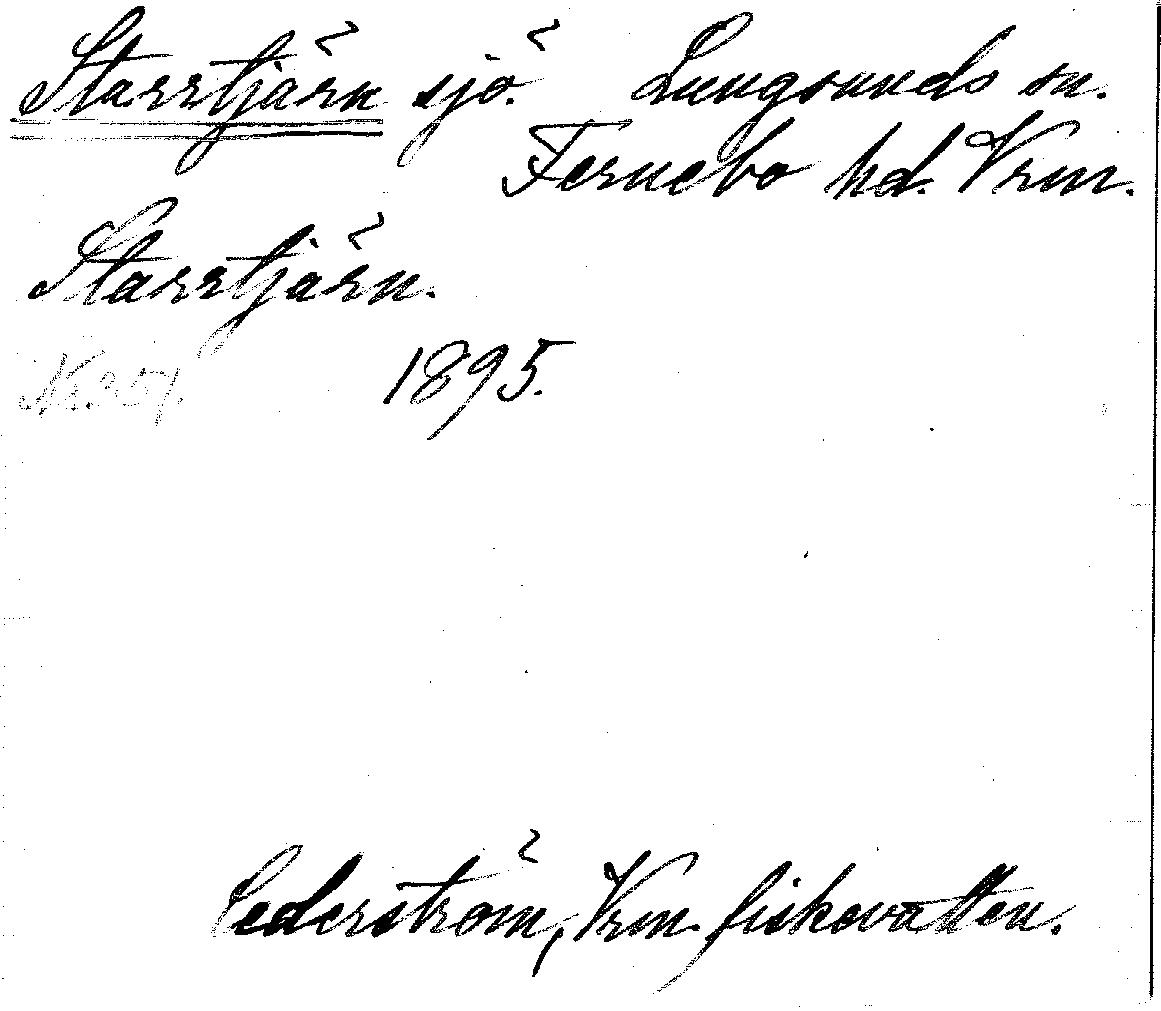 Starrtjärn sjö. Lungsunds sn.
Fernebo hd. Vrm.
Starrtjärn.
1895.
Cederström, Vrm. fiskevatten.